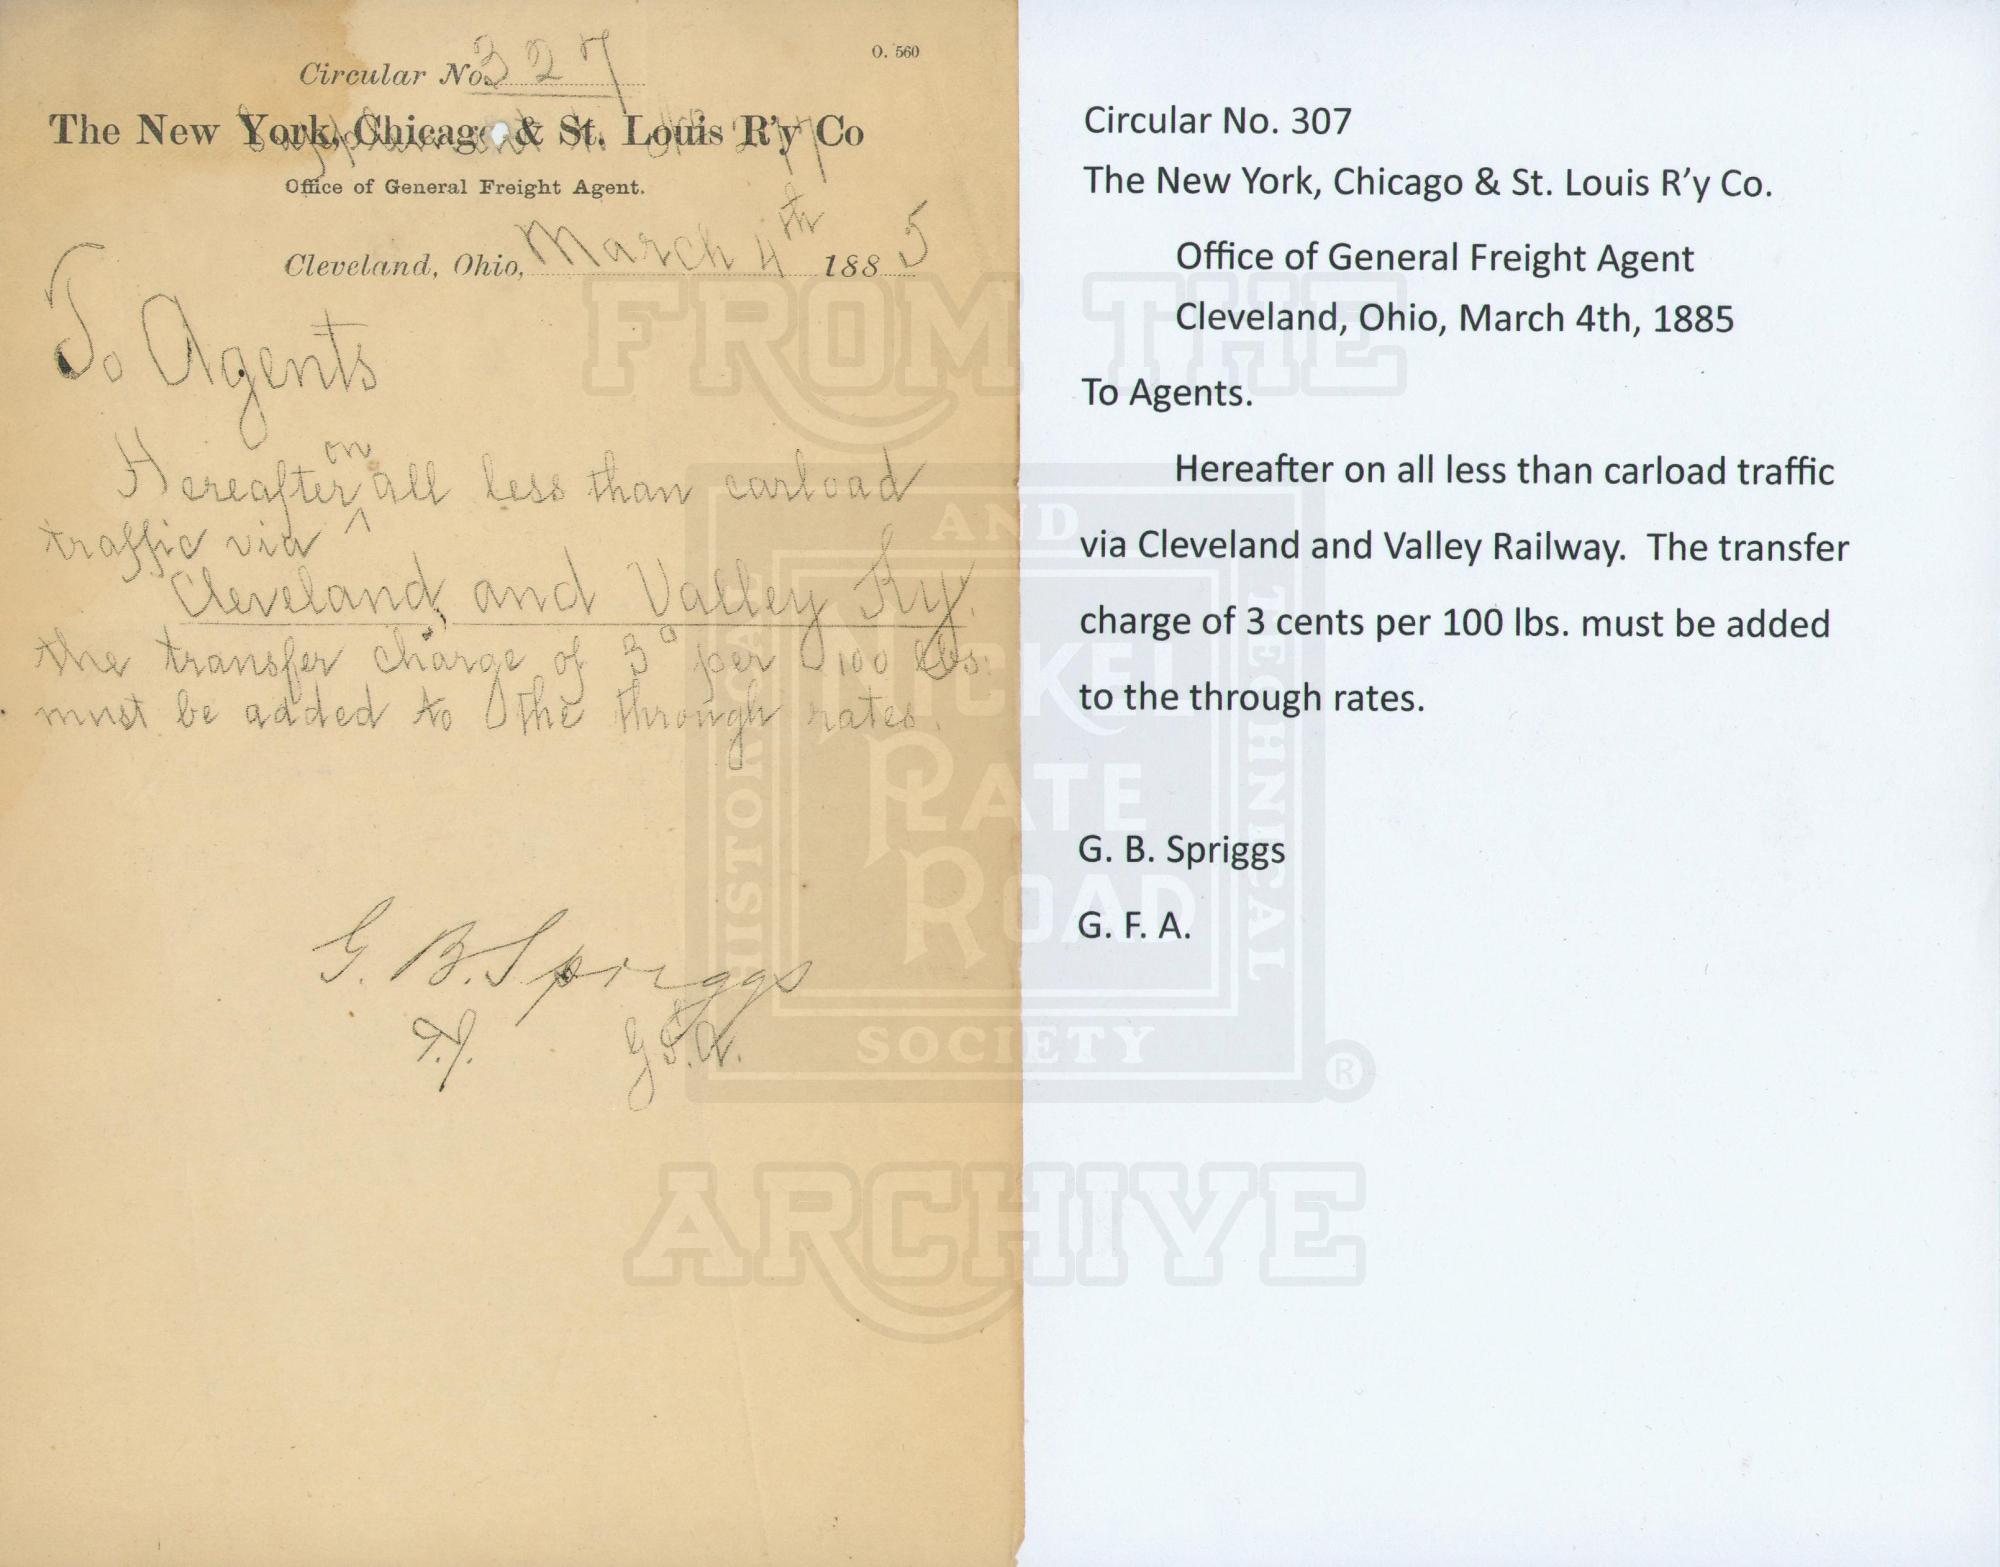 O. 560
Circular No. 327
The New York, Chicago & St. Louis R'y Co
Supplement to No 277
Office of General Freight Agent.
Cleveland, Ohio, March 4th 1885
To Agents
Hereafter on all less than carload
traffic via
Cleveland and Valley Ry.
the transfer charge of 3c per 100 lbs.
must be added to the through rates.
G. B. Spriggs
G.F.A.
Circular No. 307
The New York, Chicago & St. Louis R’y Co.
Office of General Freight Agent
Cleveland, Ohio, March 4th, 1885
To Agents.
Hereafter on all less than carload traffic
via Cleveland and Valley Railway. The transfer
charge of 3 cents per 100 lbs. must be added
to the through rates.
G. B. Spriggs
G. F. A.
FROM THE
HISTORICAL
AND
TECHNICAL
NICKEL
PLATE
ROAD
SOCIETY
®
ARCHIVE